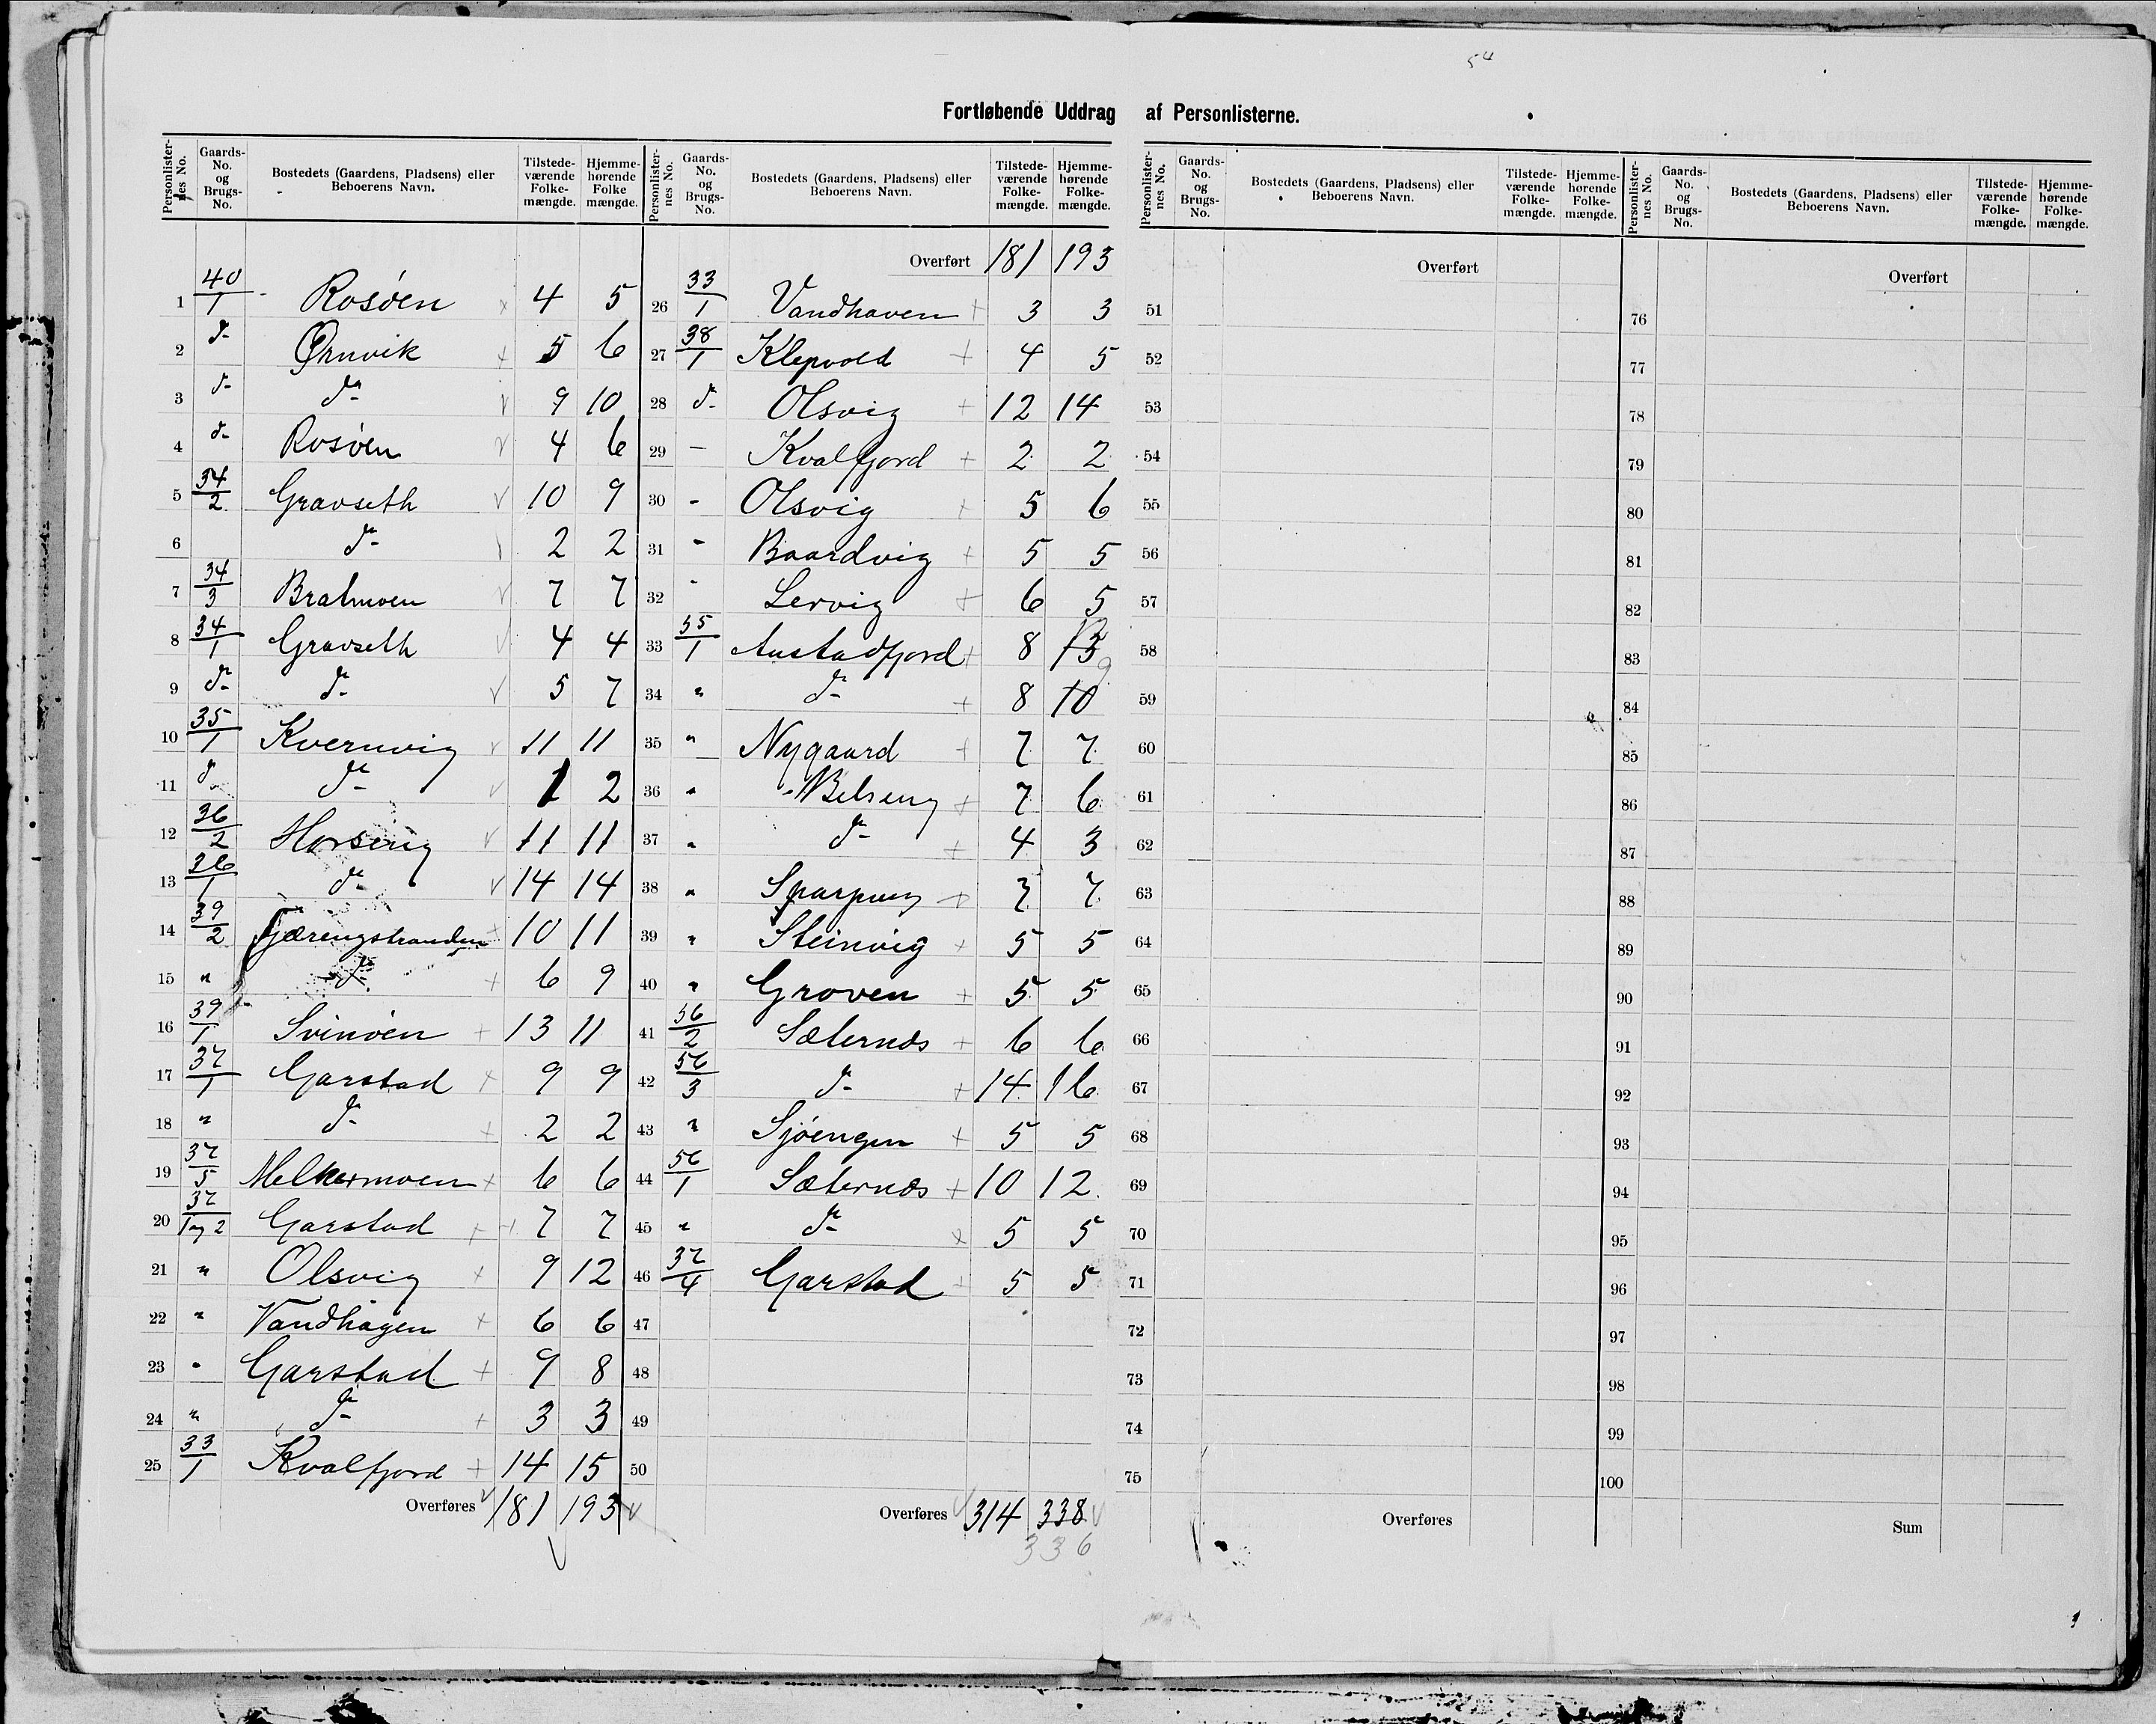 54
Fortløbende Uddrag af Personlisterne.
Personlister-nes No. Gaards-No. og Brugs-No. Bostedets (Gaardens, Pladsens) eller Beboerens Navn. Tilstede-værende Folke-mængde. Hjemme-hørende Folke mængde.
1 40/1 Rosøen 4 5
2 do Ørnvik 5 6
3 do do 9 10
4 do Rosøen 4 6
5 34/2 Gravseth 10 9
6 do 2 2
7 34/3 Bratmoen 7 7
8 34/1 Gravseth 4 4
9 do do 5 7
10 35/1 Kvernvig 11 11
11 do do 1 2
12 36/2 Horseng 11 11
13 36/1 do 14 14
14 39/2 Gjærengstranden 10 11
15 " do 6 9
16 39/1 Svinøen 13 11
17 37/1 Garstad 9 9
18 " do 2 2
19 37/5 Melkermoen 6 6
20 37/1 og 2 Garstad 7 7
21 " Olsvig 9 12
22 " Vandhagen 6 6
23 " Garstad 9 8
24 " do 3 3
25 33/1 Kvalfjord 14 15
Overføres 181 193
Personlister-nes No. Gaards-No. og Brugs-No. Bostedets (Gaardens, Pladsens) eller Beboerens Navn. Tilstede-værende Folke-mængde. Hjemme-hørende Folke-mængde.
Overført 181 193
26 33/1 Vandhaven 3 3
27 38/1 Klepvold 4 5
28 do Olsvig 12 14
29 - Kvalfjord 2 2
30 - Olsvig 5 6
31 - Baardvig 5 5
32 - Lervig 6 5
33 55/1 Austadfjord 8 13 12
34 " do 8 10 9
35 " Nygaard 7 7
36 " Belseng 7 6
37 " do 4 3
38 " 7 7
39 " Steinvig 5 5
40 " Groven 5 5
41 56/2 Sæternes 6 6
42 56/3 do 14 16
43 " Sjøengen 5 5
44 56/1 Sæternes 10 12
45 " do 5 5
46 37/4 Garstad 5 5
47
48
49
50
Overføres 314 338
336
Personlister-nes No. Gaards-No. og Brugs-No. Bostedets (Gaardens, Pladsens) eller Beboerens Navn. Tilstede-værende Folke-mængde. Hjemme-hørende Folke-mængde.
Overført
51
52
53
54
55
56
57
58
59
60
61
62
63
64
65
66
67
68
69
70
71
72
73
74
75
Overføres
Personlister-nes No. Gaards-No. og Brugs-No. Bostedets (Gaardens, Pladsens) eller Beboerens Navn. Tilstede-værende Folke-mængde. Hjemme-hørende Folke-mængde.
Overført
76
77
78
79
80
81
82
83
84
85
86
87
88
89
90
91
92
93
94
95
96
97
98
99
100
Sum